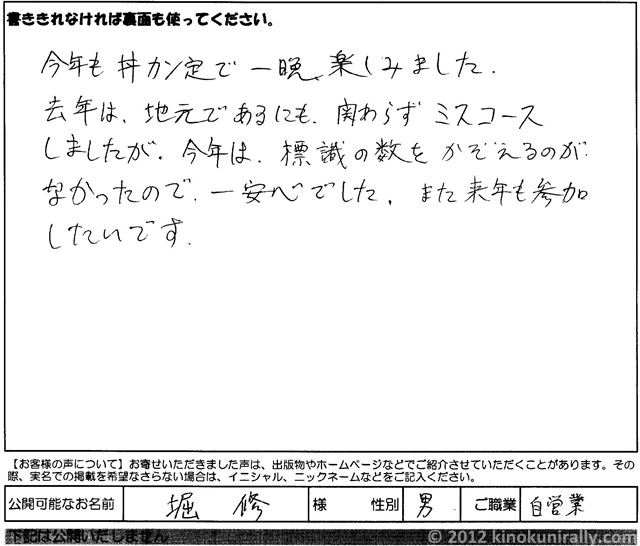 書ききれなければ裏面も使ってください。
今年も丼カン定で一晩、楽しみました.
去年は、地元であるにも、関わらず ミスコース
しましたが、今年は、標識の数を かぞえるのが
なかったので、一安心でした. また来年も参加
したいです.
【お客様の声について】お寄せいただきました声は、出版物やホームページなどでご紹介させていただくことがあります。その
際、実名での掲載を希望なさらない場合は、イニシャル、ニックネームなどをご記入ください。
公開可能なお名前 堀 修 様 性別 男 ご職業 自営業
下記は公開いたしません
© 2012 kinokunirally.com